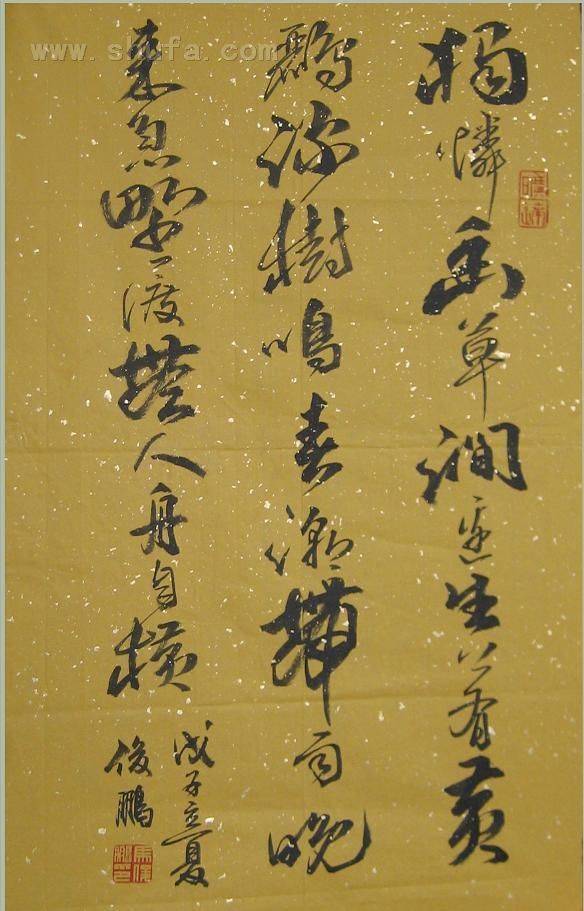 www.shufa.com
獨憐幽草澗邊生上有黄
鸝深樹鳴春潮帶雨晚
來急野渡無人舟自横
戊子立夏
俊鵬